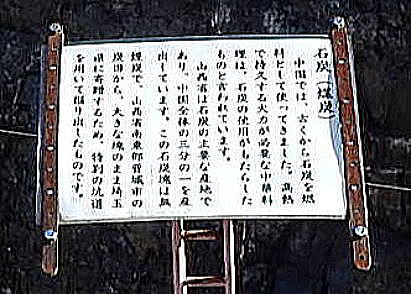 石炭（煤炭）
中国では、古くから石炭を燃
料として使ってきました。高熱
で持久する火力が必要な中華料
理は、石炭の使用がもたらした
ものと言われています。
山西省は石炭の主要な産地で
あり、中国全体の三分の一を産
出しています。この石炭塊は無
煙炭で、山西省南東部晋城市の
炭田から、大きな塊のまま埼玉
県に寄贈するため、特別の坑道
を用いて掘り出したものです。